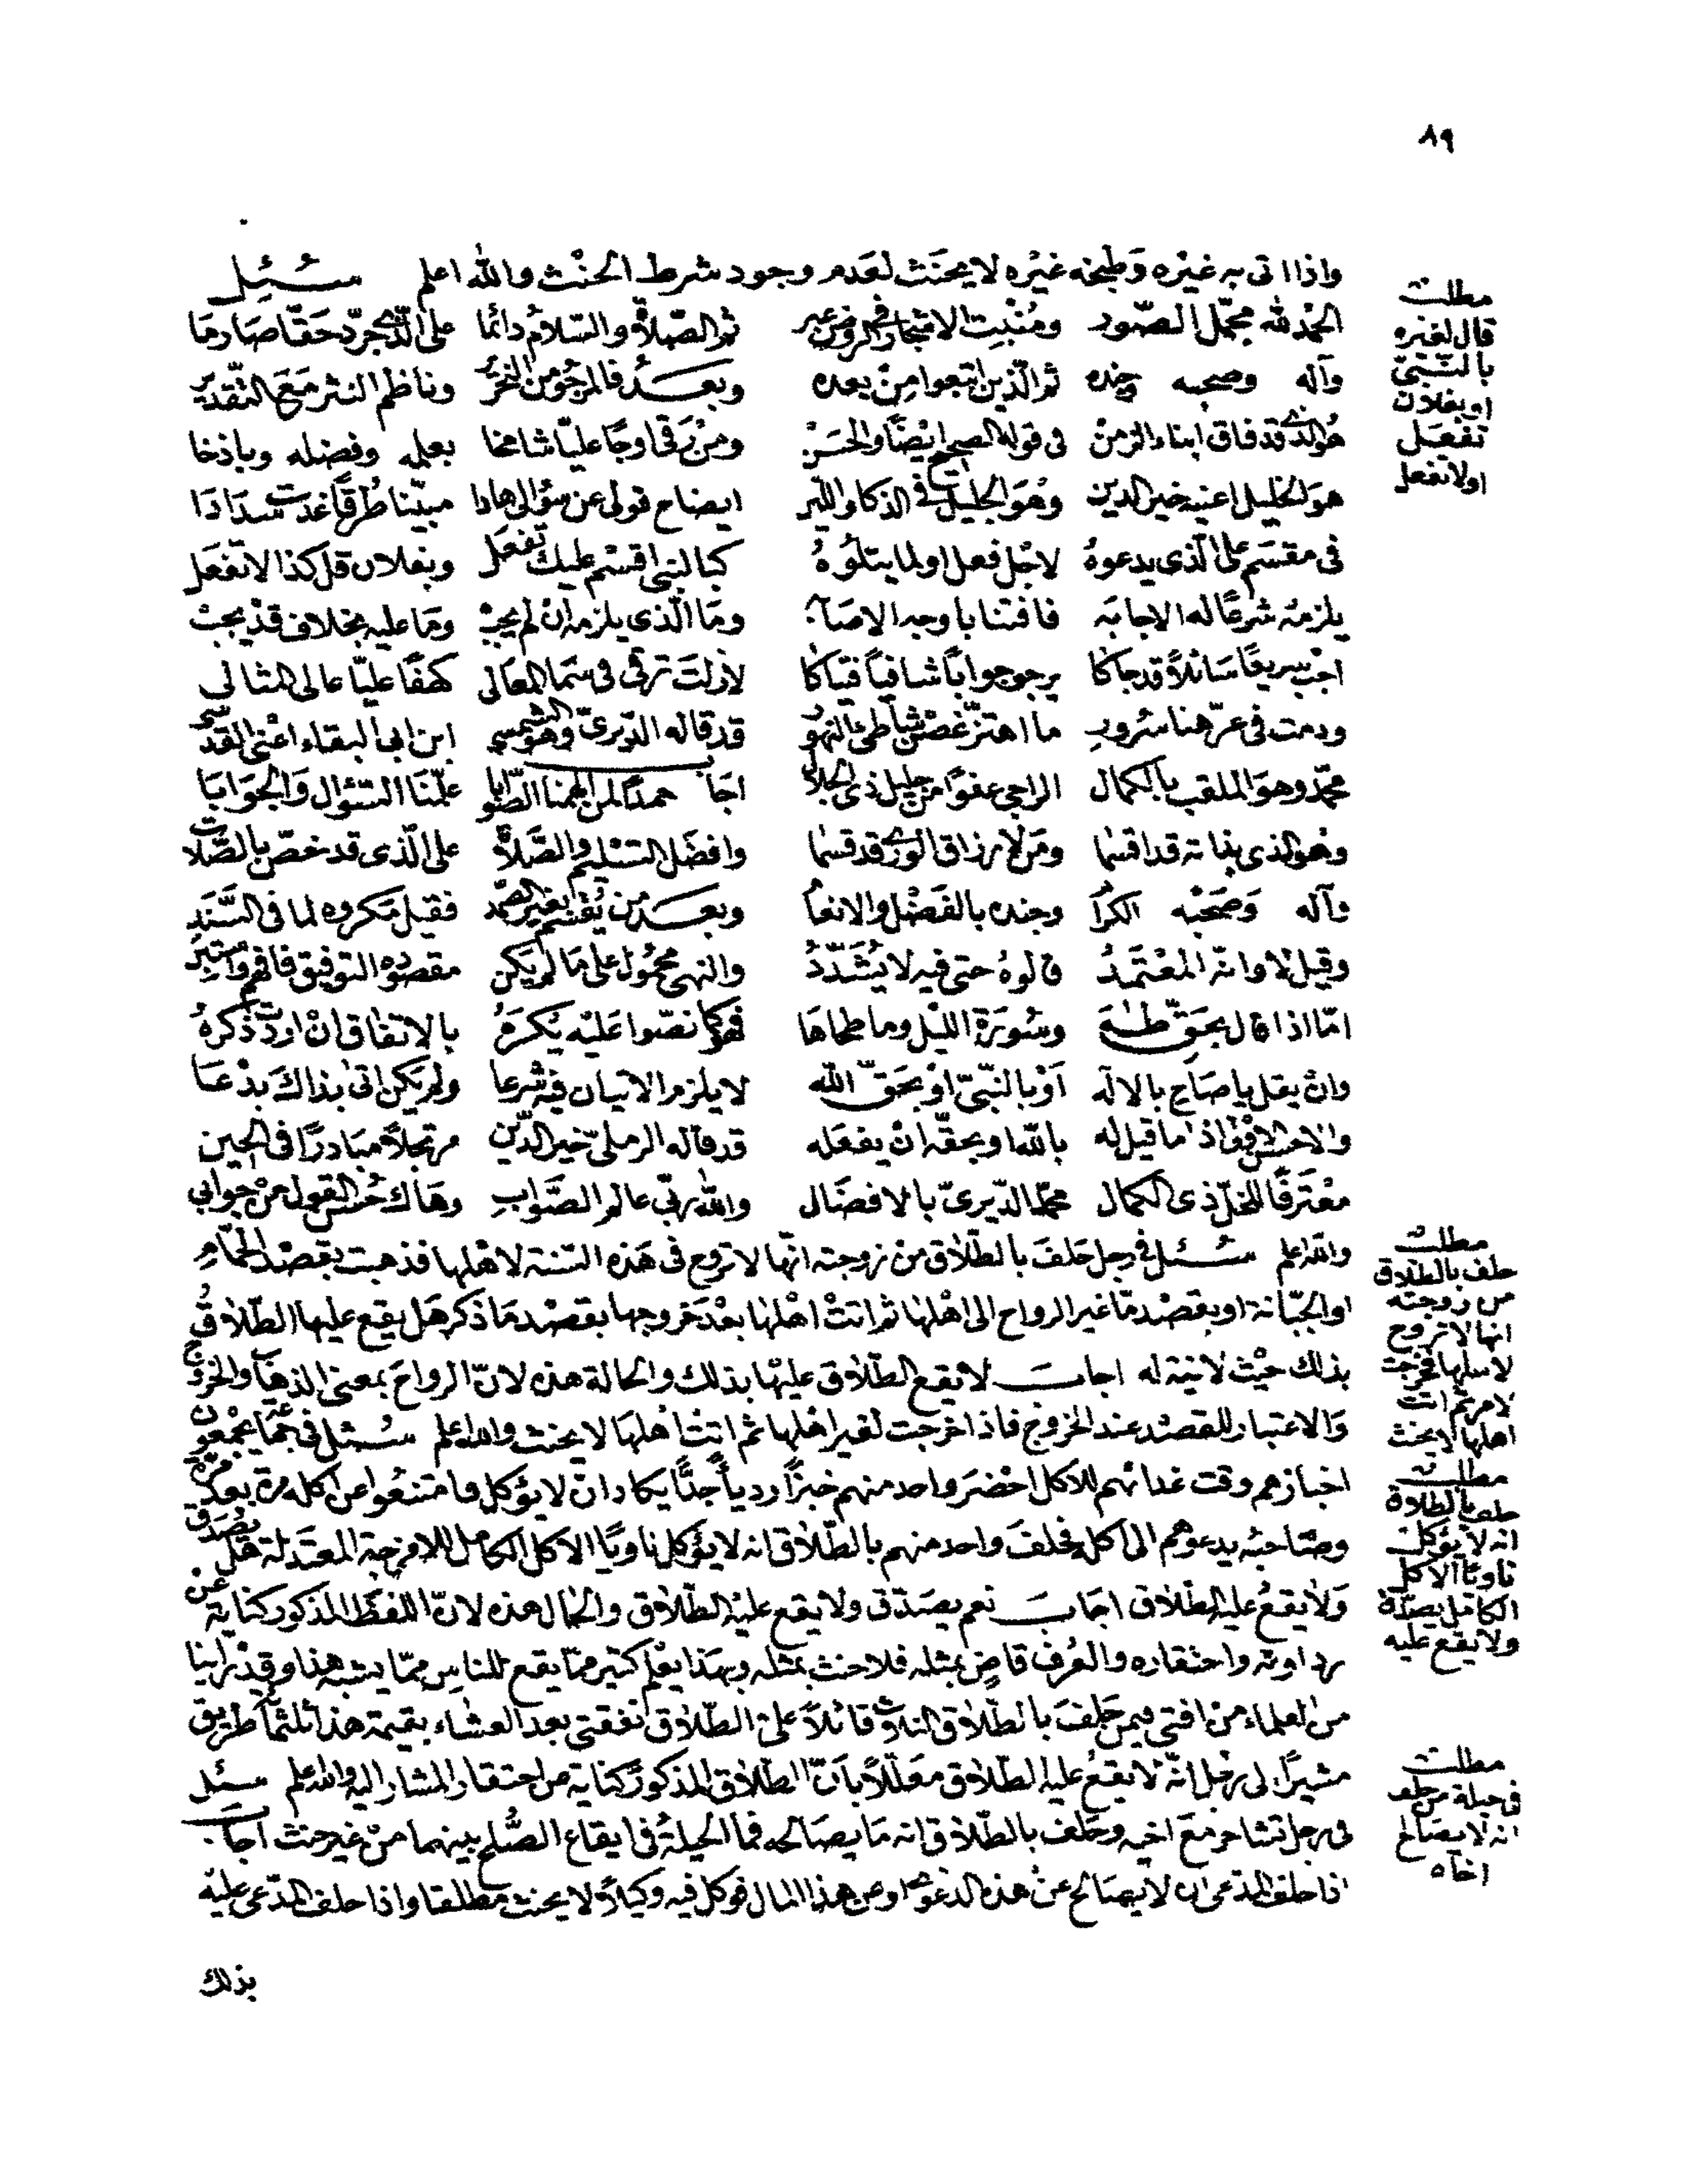 ٨٩
واذا اتى به غيره وطبخه غيره لا يحنث لعدم وجود شرط الحنث والله اعلم سئل
الحمد لله مجمل الصور ومنبت الاشجار في الروض عبر ثم الصلاة والسلام دائما على الذي جرد حقا صارما
وآله وصحبه وجنده ثم الذين اتبعوا من بعده وبعد فالمرجو من النحرير وناظم النثر مع التقدير
هو الذي قد فاق ابناء الزمن في قوله الصحيح ايضا والحسن ومن رقا اوجا عليا شامخا بعلمه وفضله وباذخا
هو الخليل اعنيه خير الدين وهو الجليل في الذكا والدين ايضاح قولى عن سؤالى هاذا مبينا طرقا غدت سدادا
فى مقسم على الذى يدعوه لاجل فعل او لما يتلوه كبالنبى اقسم عليك تفعل وبفلان قل كذا لا تفعل
يلزمه شرعا له الاجابه فافتنا باوجه الاصابه وما الذى يلزمه ان لم يجب وما عليه بخلاف قد يجب
اجب سريعا سائلا قد جاكا يرجو جوابا شافيا فتياكا لازلت ترقى فى سما المعالى كهفا عليا عالى المثالى
ودمت فى عز هنا سرور ما اهتز غصن شاطئ النهور قد قاله الديرى وهو الشمسى ابن ابى البقاء اعنى القدسى
محمد وهو الملقب بالكمال الراجى عفوا من جليل ذى الجلال اجاب حمدا لمن الهمنا الصوابا علمنا السئوال والجوابا
وهو الذى بذاته قد اقسما ومن لارزاق الورى قد قسما وافضل التسليم والصلاة على الذى قد خص بالصلات
وآله وصحبه الكرام وجنده بالفضل والانعام وبعد من يقسم بغير الصمد فقيل مكروه لما فى السند
وقيل لا وانه المعتمد قالوه حتى فيه لا يشدد والنهى محمول على ما لم يكن مقصوده التوفيق فافهم واستبن
اما اذا قال بحق طه وسورة الليل وما طحاها فهو كما نصوا عليه يكره بالاتفاق ان اردت ذكره
وان يقل يا صاح بالاله او بالنبى او بحق الله لا يلزم الاتيان فيه شرعا ولم يكن اتى بذاك بدعا
والاحسن الافقى اذا ما قيل له بالله او بحقه ان يفعله قد قاله الرملى خير الدين مرتجلا مبادرا فى الحين
معترفا للخل ذى الكمال محمد الديرى بالافضال والله ربى عالم الصواب وهاك حسن القول من جوابى
والله اعلم سئل فى رجل حلف بالطلاق من زوجته انها لا تروح فى هذه السنة لاهلها فذهبت بقصد الحمام
او الجبانة او بقصد ما غير الرواح الى اهلها ثم اتت اهلها بعد خروجها بقصد ما ذكر هل يقع عليها الطلاق
بذلك حيث لا نية له اجاب لا يقع الطلاق عليها بذلك والحالة هذه لان الرواح بمعنى الذهاب والخروج
والاعتبار للقصد عند الخروج فاذا خرجت لغير اهلها ثم اتت اهلها لا يحنث والله اعلم سئل فى جماعة يجمعون
اخبازهم وقت غدائهم للاكل احضر واحد منهم خبزا رديأ جدا يكاد ان لا يؤكل فامتنعوا عن اكله مرة بعد مرة
وصاحبه يدعوهم الى اكله فحلف واحد منهم بالطلاق انه لا يؤكل ناويا الاكل الكامل للامزجة المعتدلة هل يصدق
ولا يقع عليه الطلاق اجاب نعم يصدق ولا يقع عليه الطلاق والحال هذه لان اللفظ المذكور كناية عن
رداوته واحتقاره والعرف قاض بمثله فلا حنث بمثله وبهذا يعلم كثير مما يقع للناس مما يشبه هذا وقد راينا
من العلماء من افتى فيمن حلف بالطلاق الثلاث قائلا على الطلاق انفقتى بعد العشاء بقيمة هذا ثلثمائة طريق
مشيرا الى رجل انه لا يقع عليه الطلاق معللا بان الطلاق المذكور كناية عن احتقار المشار اليه والله اعلم سئل
فى رجل تشاجر مع اخيه وحلف بالطلاق انه ما يصالحه فما الحيلة فى ايقاع الصلح بينهما من غير حنث اجاب
اذا حلف المدعى ان لا يصالح عن هذه الدعوى او عن هذا المال فوكل فيه وكيلا لا يحنث مطلقا واذا حلف المدعى عليه
بذلك
مطلب
قال لغيره
بالنبى
او بفلان
تفعل
او لا تفعل
مطلب
حلف بالطلاق
من زوجته
انها لا تروح
لاهلها فخرجت
لامر ثم اتت
اهلها لا يحنث
مطلب
حلف بالطلاق
انه لا يؤكل
ناويا الاكل
الكامل يصدق
ولا يقع عليه
مطلب
فى حيلة من حلف
انه لا يصالح
اخاه